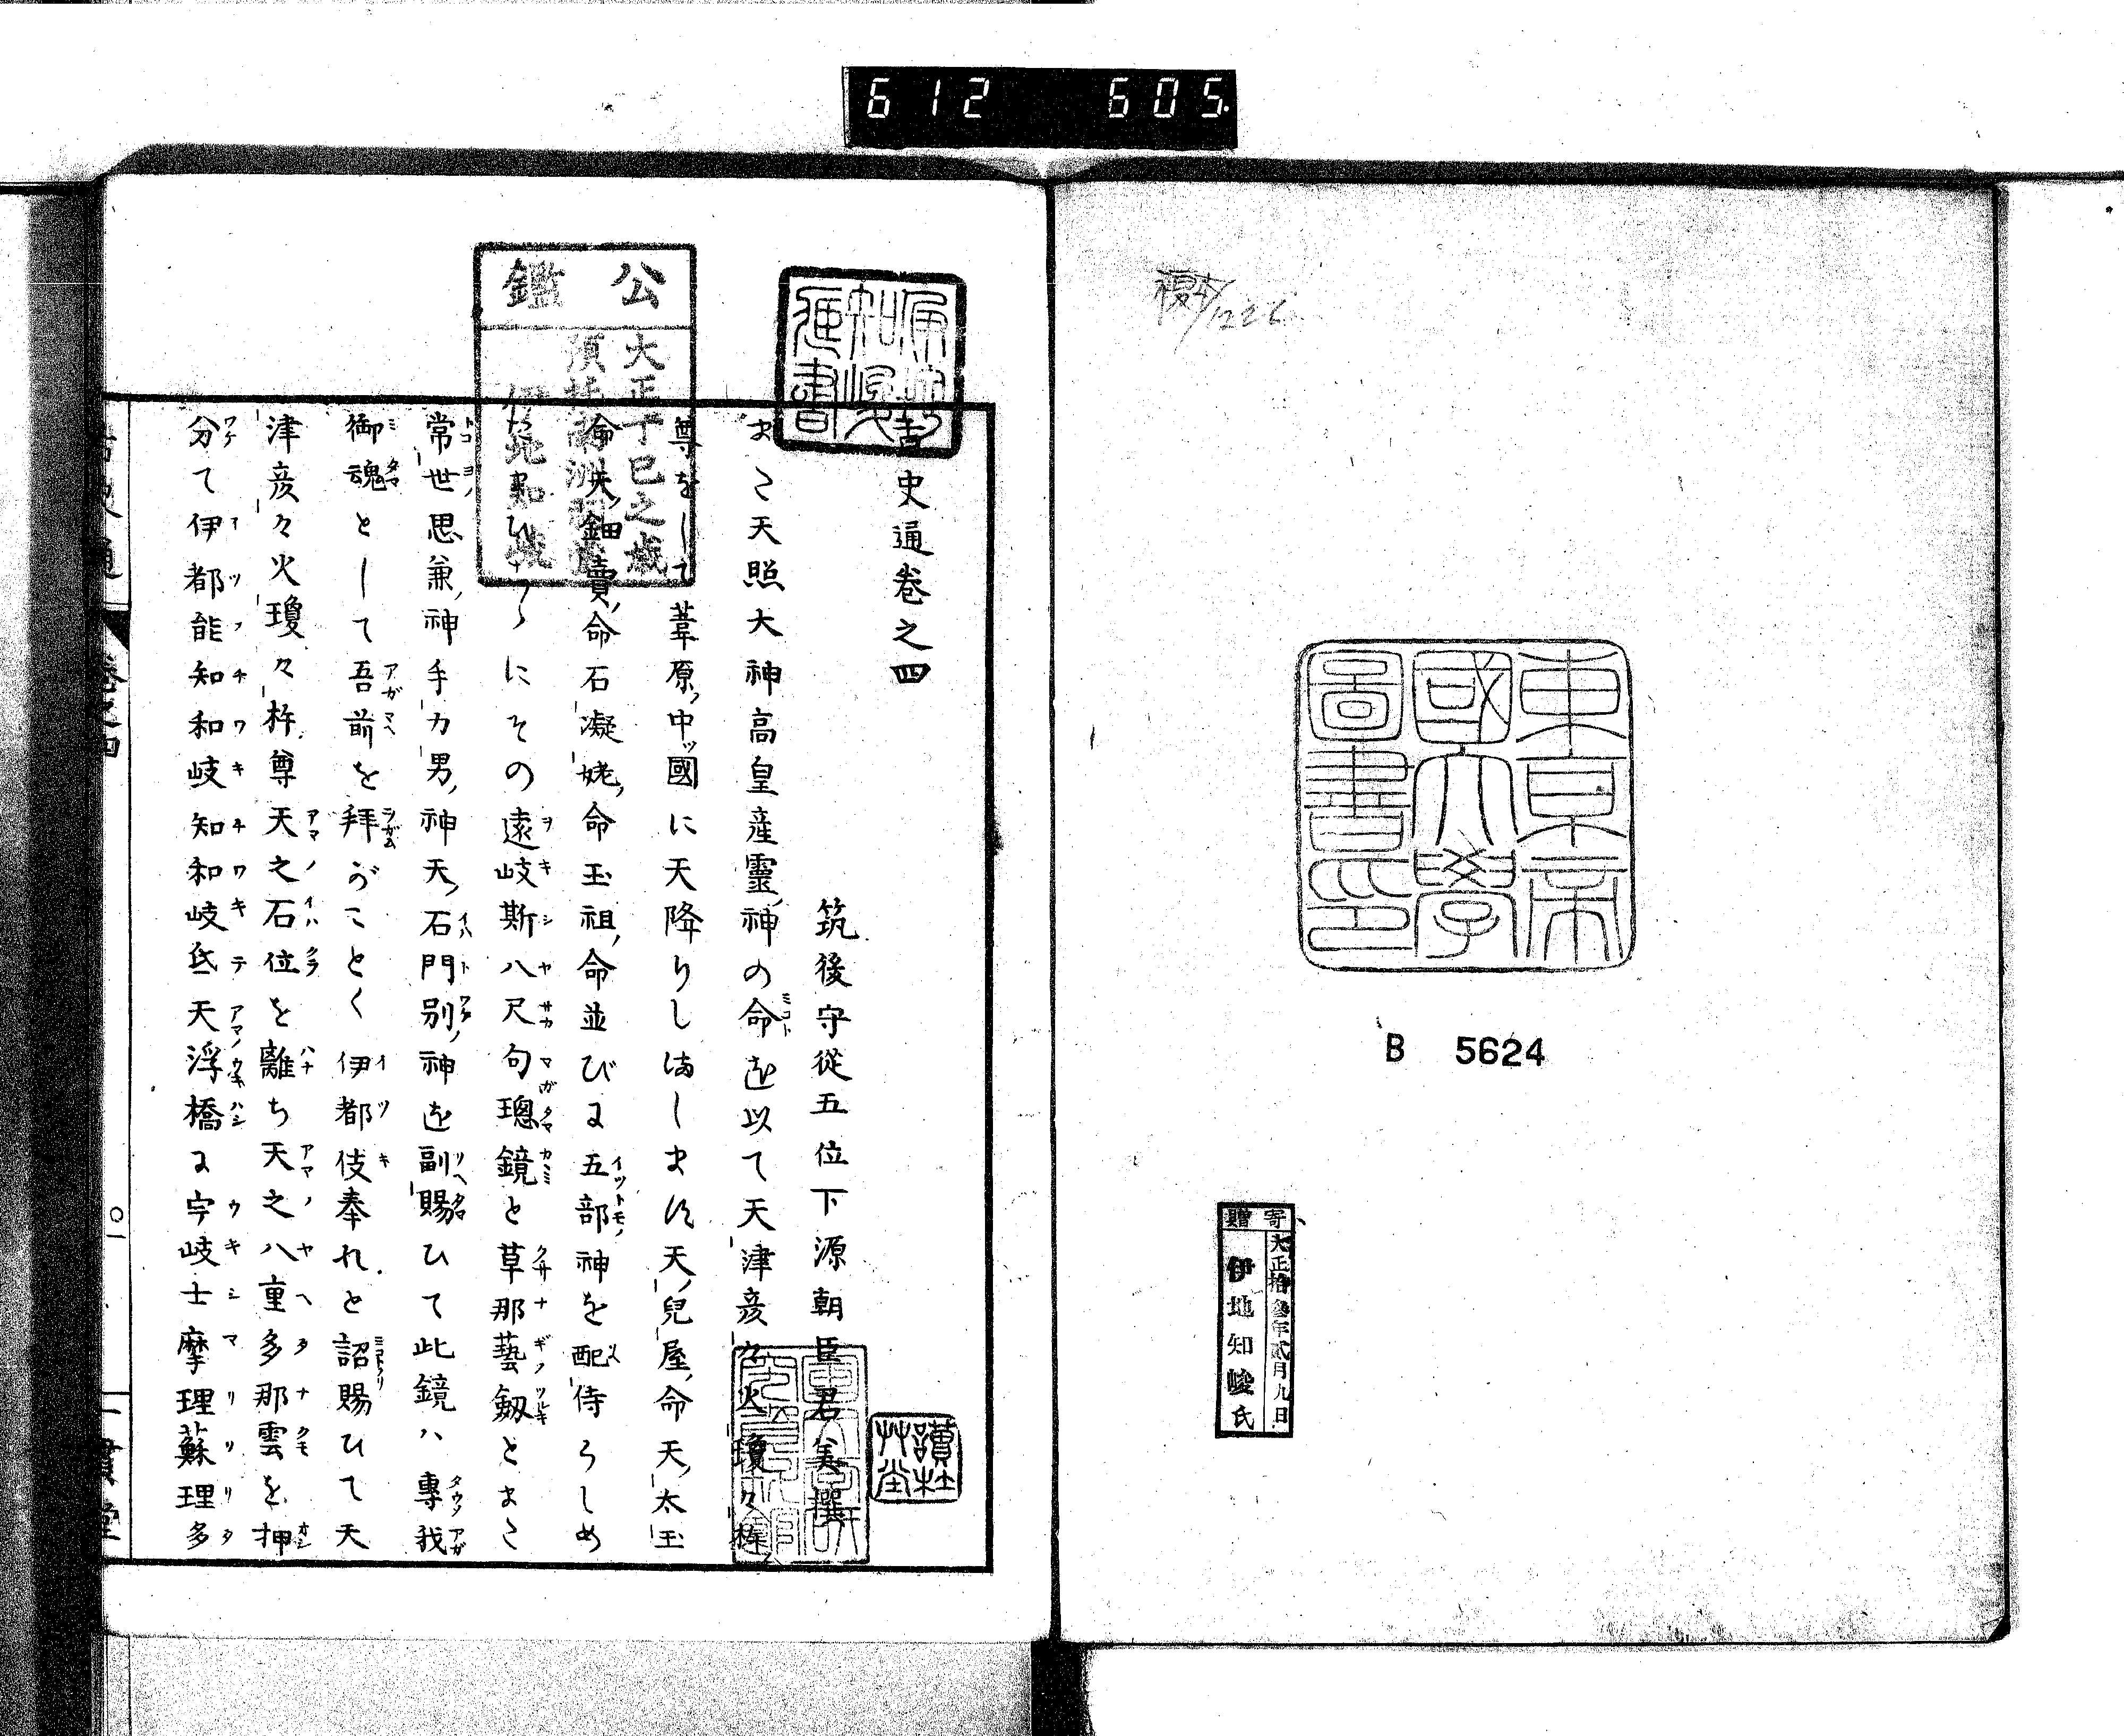 612 605.
複本/1226
東京帝
國大學
圖書印
B 5624
寄贈
大正拾參年貳月九日
伊地知峻氏
古史通卷之四
筑後守從五位下源朝臣君美撰
まこ天照大神高皇産靈神の命を以て天津彦々火瓊々杵
尊をして葦原中ッ國に天降りしまします天兒屋命天太玉
命天鈿賣命石凝姥命玉祖命並びに五部神を配侍らしめ
にその遠岐斯八尺句璁鏡と草那藝劔とまた
常世思兼神手力男神天石門別神を副賜ひて此鏡ハ專我
御魂として吾前を拜がことく伊都伎奉れと詔賜ひて天
津彦々火瓊々杵尊天之石位を離ち天之八重多那雲を押
分て伊都能知和岐知和岐氐天浮橋に宇岐士摩理蘇理多
公鑑
大正丁巳之歳
伊地知
讀杜
艸堂
卷之四
〇一
一貫堂